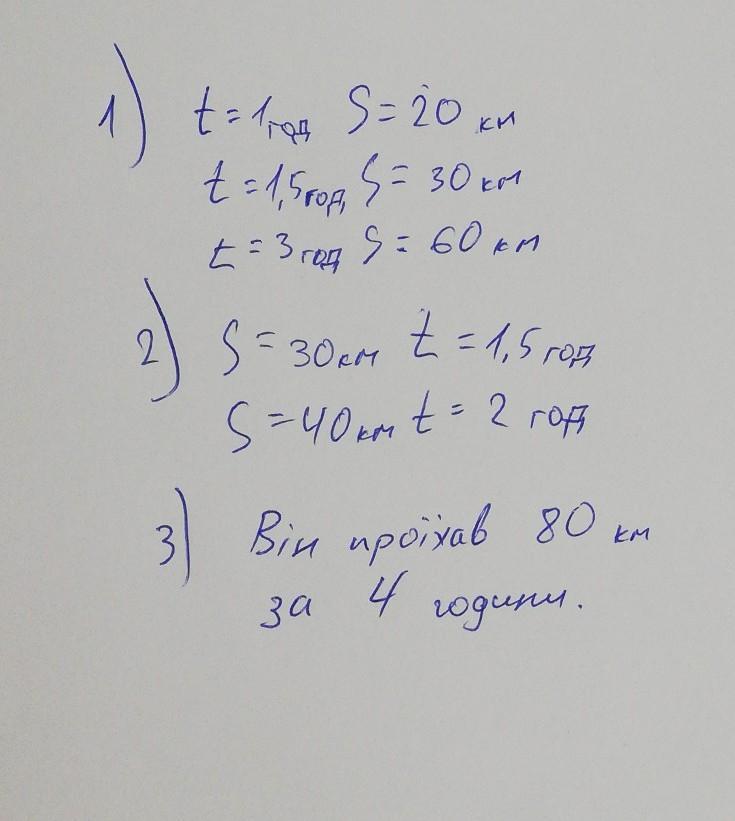 1) t = 1 год S = 20 км
t = 1,5 год, S = 30 км
t = 3 год S = 60 км
2) S = 30 км t = 1,5 год
S = 40 км t = 2 год
3) Він проїхав 80 км
за 4 години.